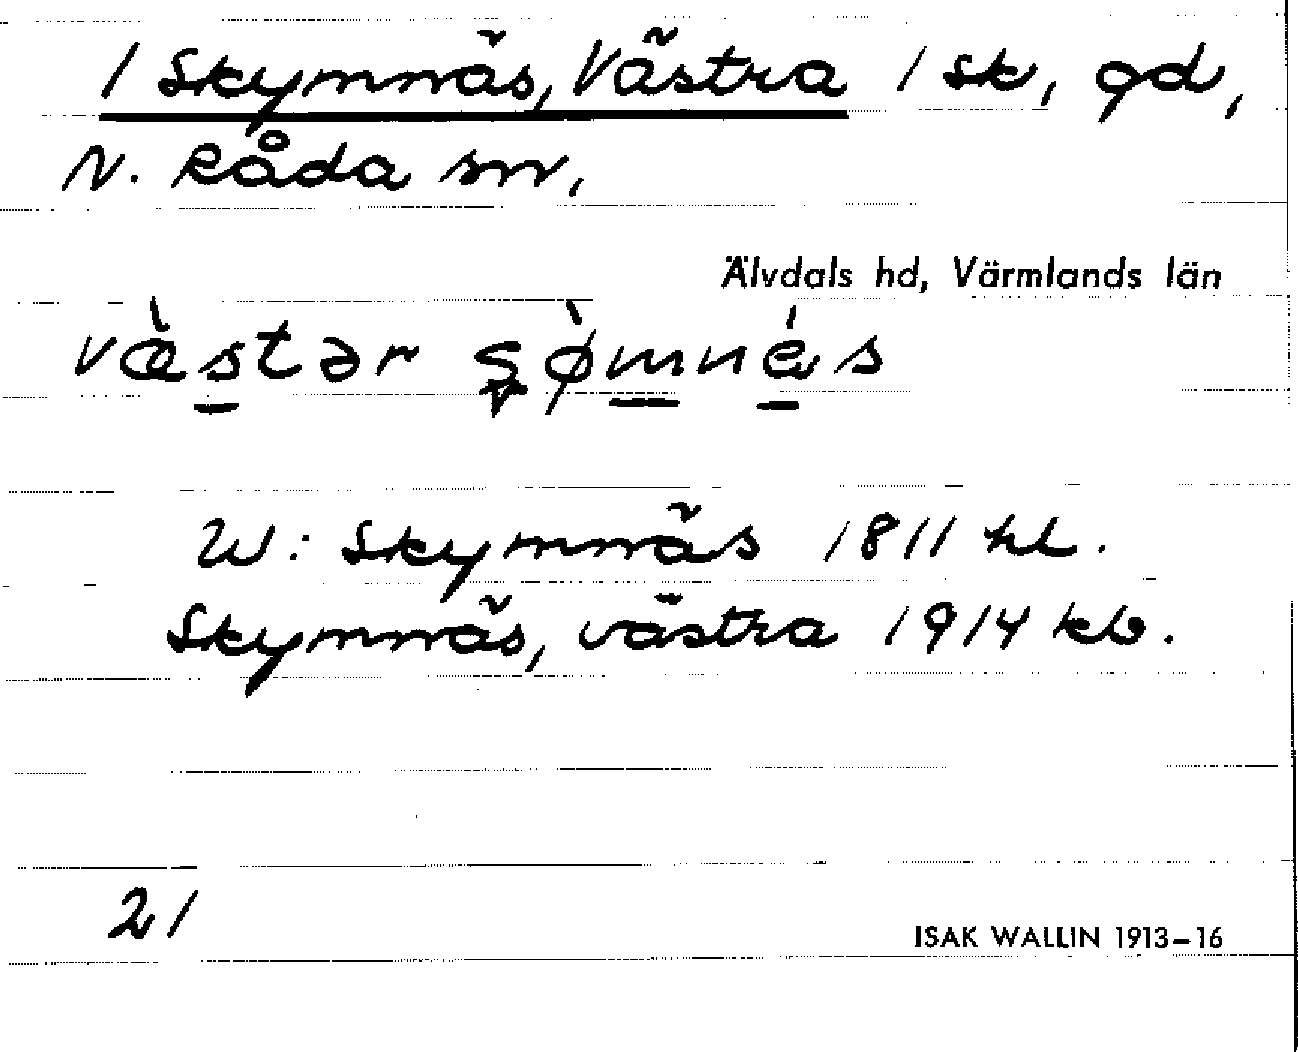 1 Skymnäs, Västra 1 sk, gd,
N. Råda sn,
Älvdals hd, Värmlands län
væ̀stər ʂø̀mnés
W: Skymnäs 1811 hl.
Skymnäs, västra 1914 kb.
21
ISAK WALLIN 1913–16